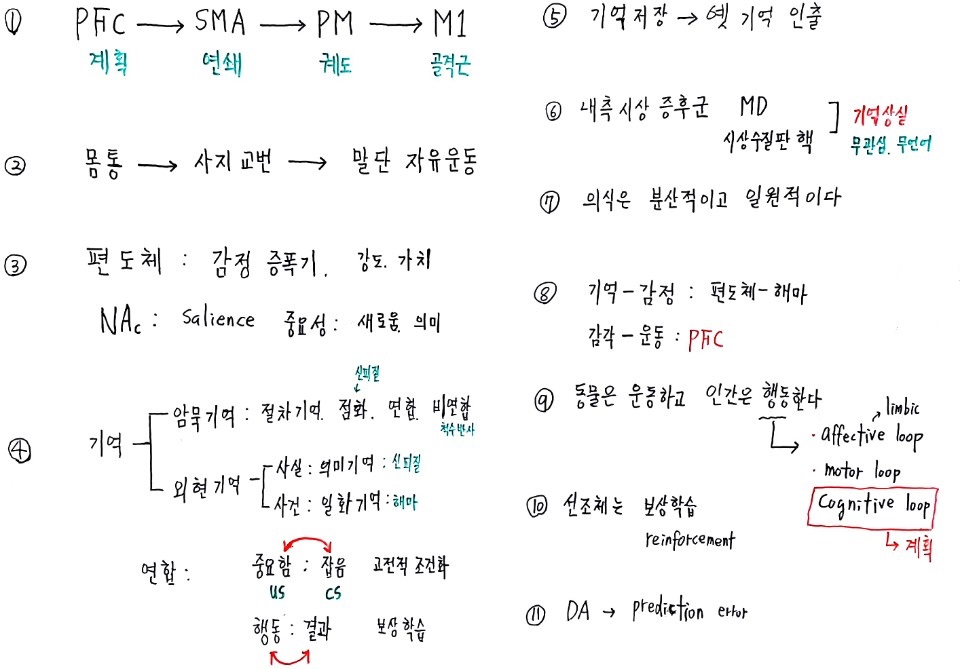 ① PFC → SMA → PM → M1
계획 연쇄 궤도 골격근
② 몸통 → 사지교번 → 말단 자유운동
③ 편도체 : 감정 증폭기. 강도. 가치
NAc : Salience 중요성 : 새로움. 의미
④ 기억
신피질
암묵기억 : 절차기억. 점화. 연합. 비연합
척수반사
외현기억
사실 : 의미기억 : 신피질
사건 : 일화기억 : 해마
연합 : 중요함 : 잡음 고전적 조건화
US CS
행동 : 결과 보상학습
⑤ 기억저장 → 옛 기억 인출
⑥ 내측시상 증후군 MD
시상수질판 핵
기억상실
무관심. 무언어
⑦ 의식은 분산적이고 일원적이다
⑧ 기억 - 감정 : 편도체 - 해마
감각 - 운동 : PFC
⑨ 동물은 운동하고 인간은 행동한다
limbic
· affective loop
· motor loop
Cognitive loop
↳ 계획
⑩ 선조체는 보상학습
reinforcement
⑪ DA → prediction error